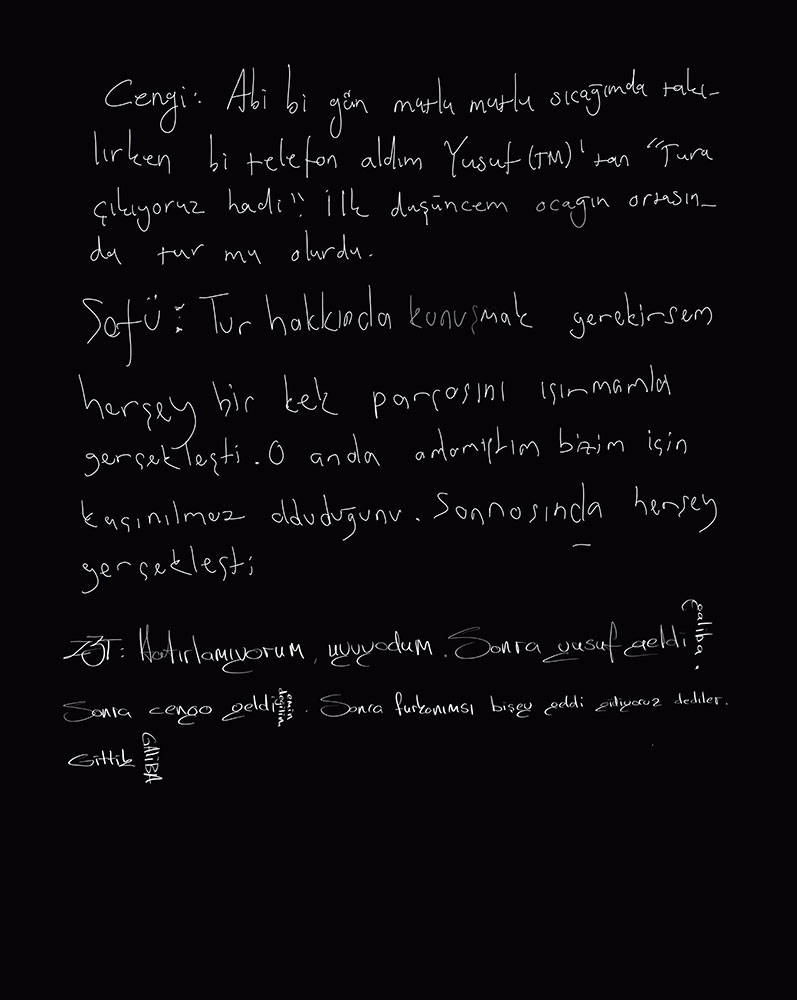 Cengi: Abi bi gün mutlu mutlu sıcağımda takı-
lırken bi telefon aldım Yusuf (TM)'tan "Tura
çıkıyoruz hadi". İlk düşüncem ocağın ortasın-
da tur mu olurdu.
Sofü: Tur hakkında konuşmak gerekirsem
herşey bir kek parçasını ışırmamla
gerçekleşti. O anda anlamıştım bizim için
kaçınılmaz olduduğunu. Sonrosında herşey
gerçekleşti
Hatırlamıyorum, uyuyodum. Sonra yusuf geldi galiba.
Sonra cengo geldi emin değilim. Sonra furkanımsı bişey geldi gidiyoruz dediler.
Gittik GALİBA